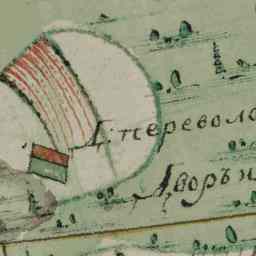 Д: переволо
Дворъ и